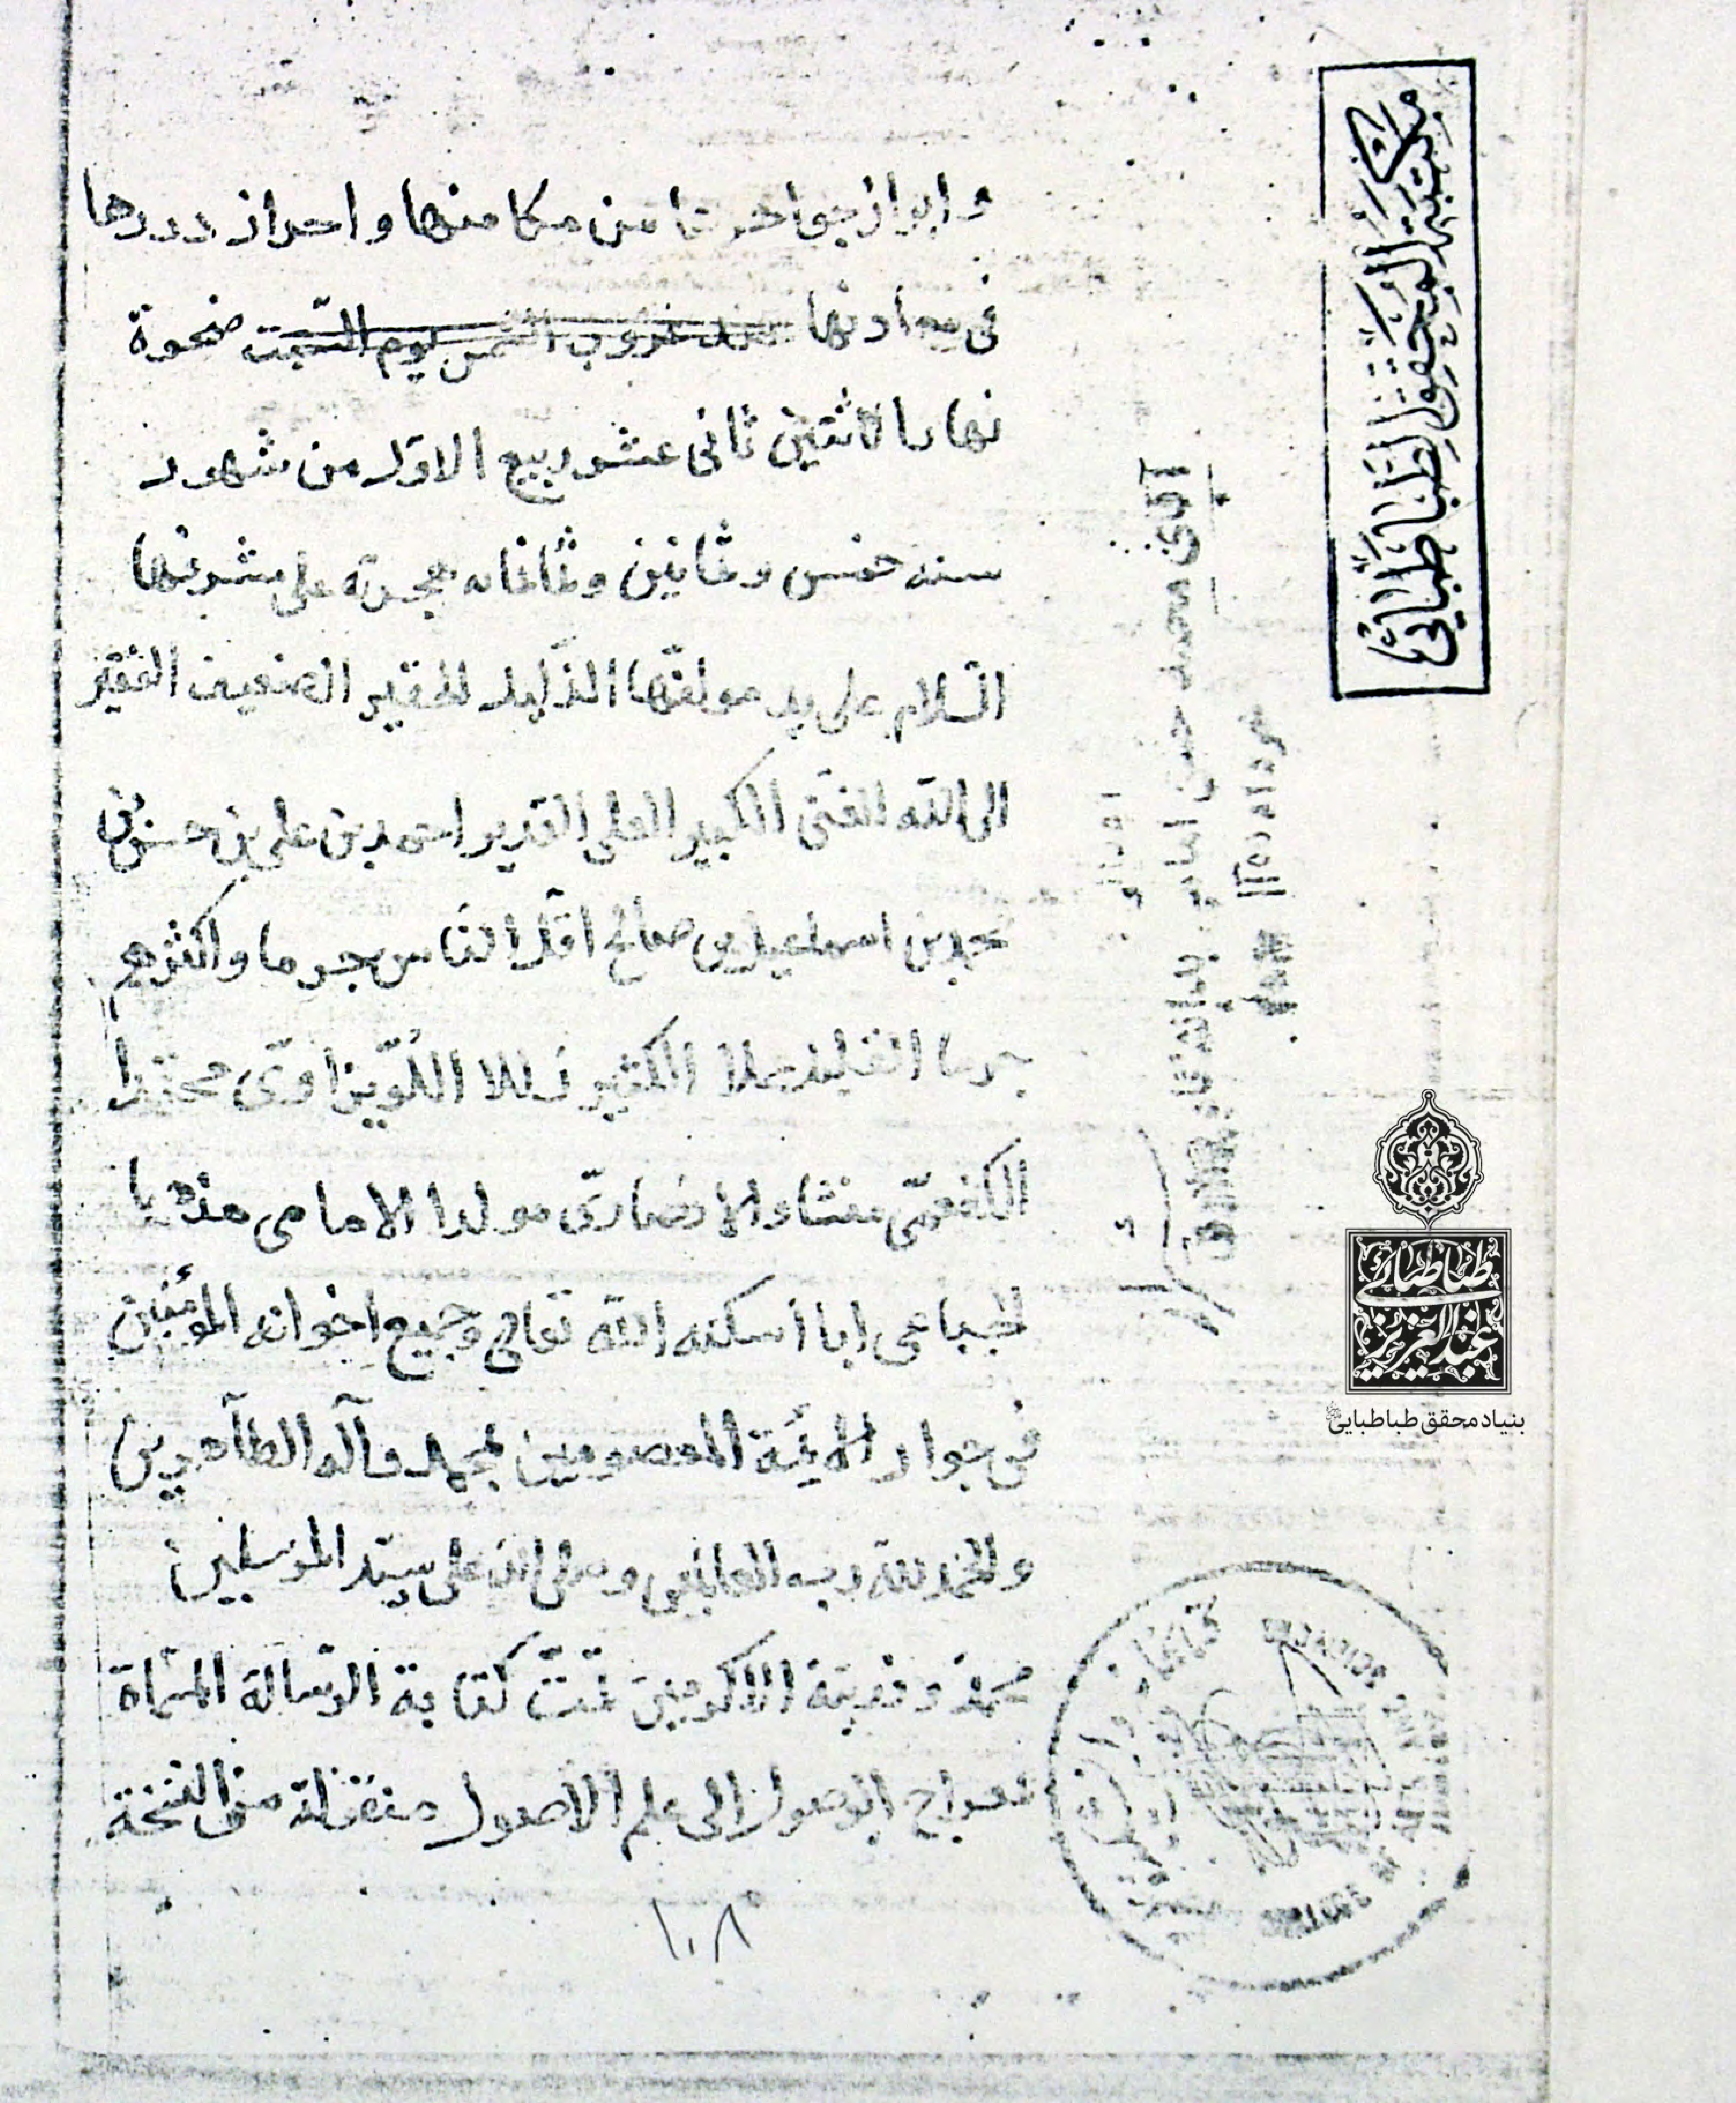 و ابراز جواهرها من مكامنها و احراز دررها
فى معادنها عند غروب الشمس يوم السّبت ضحوة
نهار الاثنين ثانى عشر ربيع الاوّل من شهور
سنه خمس وثمانين وثمانمايه هجريّة على مشرفها
السّلام على يد مولفها الذليل الحقير الضعيف الفقير
الى الله الغنى الكبير العلى القدير احمد بن على بن حسن بن
محمد بن اسماعيل بن صالح اقل الناس جرما واكثرهم
جرما القليل عملا الكثير زللا اللّويزاوىّ محتدا
الكفعمّى منشاء والانصارىّ مولدا الامامى مذهبا
الجباعى ابا اسكنه الله تعالى وجميع اخوانه المؤمنين
فى جوار الائمّة المعصومين بمحمد وآله الطاهرين
والحمد لله رب العالمين وصلى الله على سيّد المرسلين
محمد و الاكرمين تمّت كتابة الرّسالة المسمّاة
بمعراج الوصول الى علم الاصول من النسخة
١٠٨
مكتبة المحقق الطباطبائي
آقاى محمد حسن
طباطبائى
عبدالعزيز
بنیاد محقق طباطبایی